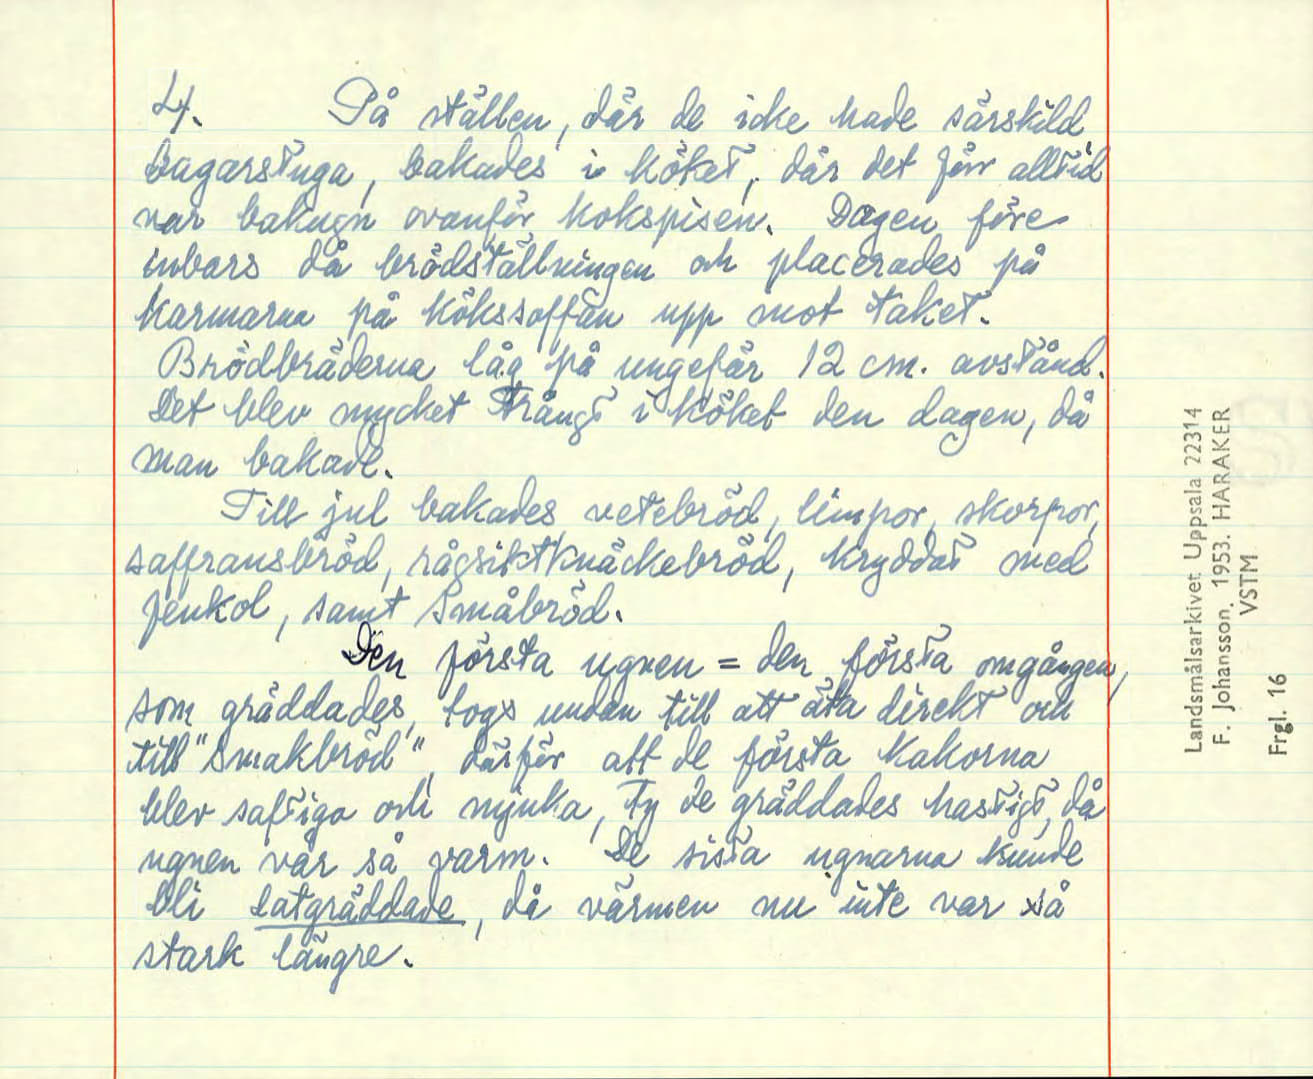 4. På ställen, där de icke hade särskild
bagarstuga, bakades i köket, där det förr alltid
var bakugn ovanför kokspisen. Dagen före
inbars då brödställningen och placerades på
karmarna på kökssoffan upp mot taket.
Brödbräderna låg på ungefär 12 cm. avstånd.
Det blev mycket trångt i köket den dagen, då
man bakade.
Till jul bakades vetebröd, limpor, skorpor,
saffransbröd, rågsiktknäckebröd, kryddat med
fenkol, samt småbröd.
Den första ugnen = den första omgången,
som gräddades, togs undan till att äta direkt och
till "smakbröd", därför att de första kakorna
blev saftiga och mjuka, ty de gräddades hastigt, då
ugnen var så varm. De sista ugnarna kunde
bli latgräddade, då värmen nu inte var så
stark längre.
Landsmålsarkivet Uppsala 22314
F. Johansson. 1953. HARAKER
VSTM
Frgl. 16